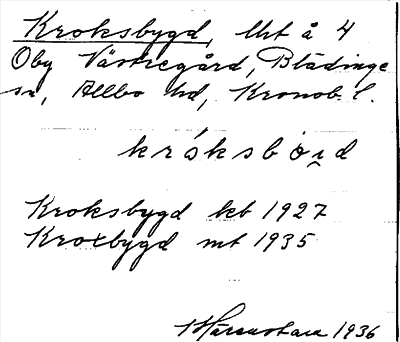 Kroksbygd, lht å 4
Oby Västregård, Blädinge
sn, Allbo hd, Kronob. l.
króksbo̯i̯d
Kroksbygd kb 1927
Kroxbygd mt 1935
1936